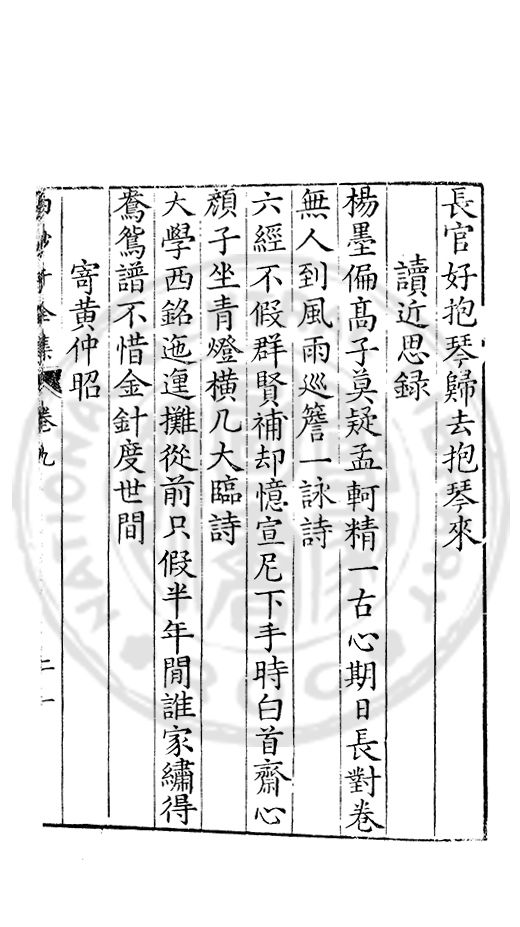 長官好抱琴歸去抱琴來
讀近思録
楊墨偏髙子莫疑孟軻精一古心期日長對卷
無人到風雨巡簷一詠詩
六經不假群賢補却憶宣尼下手時白首齋心
顏子坐青燈橫几大臨詩
大學西銘迤邐攤從前只假半年閒誰家繡得
鴦鴛譜不惜金針度世間
寄黃仲昭
全集 卷九